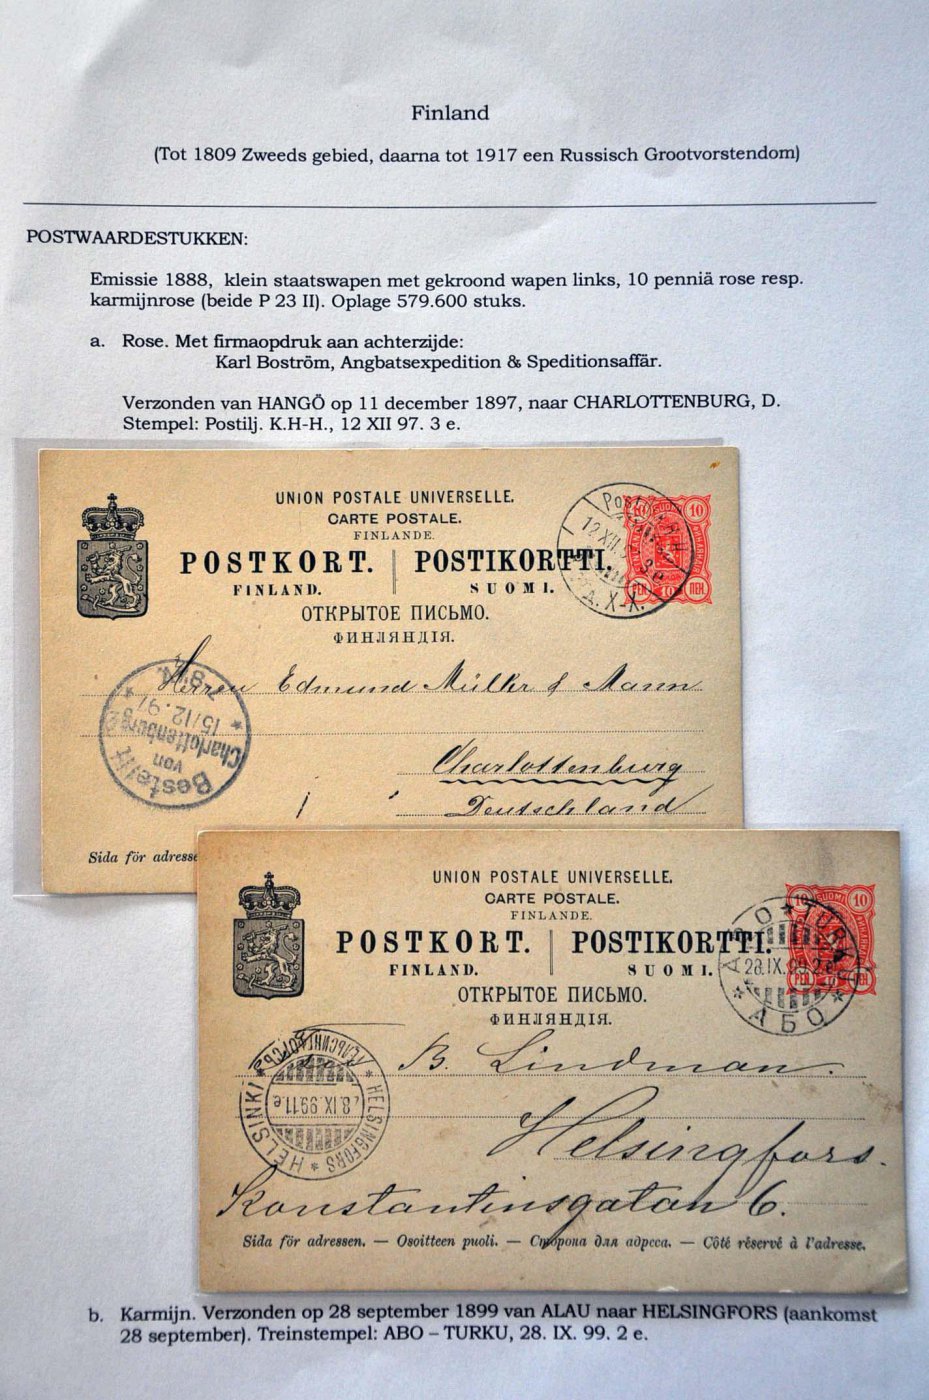 Finland
(Tot 1809 Zweeds gebied, daarna tot 1917 een Russisch Grootvorstendom)
POSTWAARDESTUKKEN:
Emissie 1888, klein staatswapen met gekroond wapen links, 10 penniä rose resp.
karmijnrose (beide P 23 II). Oplage 579.600 stuks.
a. Rose. Met firmaopdruk aan achterzijde:
Karl Boström, Angbatsexpedition & Speditionsaffär.
Verzonden van HANGÖ op 11 december 1897, naar CHARLOTTENBURG, D.
Stempel: Postilj. K.H-H., 12 XII 97. 3 e.
UNION POSTALE UNIVERSELLE.
CARTE POSTALE.
FINLANDE.
POSTKORT. POSTIKORTTI.
FINLAND. SUOMI.
ОТКРЫТОЕ ПИСЬМО.
ФИНЛЯНДІЯ.
10 10
ПЕН.
12 XII. 3 e
Д. Х-Х.
Herren Edmund Müller & Mann
Charlottenburg
Deutschland
Bestellt
von
Charlottenburg 2
15/12.97
Sida för adresse
UNION POSTALE UNIVERSELLE.
CARTE POSTALE.
FINLANDE.
POSTKORT. POSTIKORTTI.
FINLAND. SUOMI.
ОТКРЫТОЕ ПИСЬМО.
ФИНЛЯНДІЯ.
10 SUOMI 10
ÅBO * TURKU
28.IX.99 2 e
* АБО *
B. Lindman.
Helsingfors.
Konstantinsgatan 6.
HELSINKI * HELSINGFORS *
ГЕЛЬСИНГФОРСЪ
28.IX.99 11.e
Sida för adressen. — Osoitteen puoli. — Сторона для адреса. — Côté réservé à l'adresse.
b. Karmijn. Verzonden op 28 september 1899 van ALAU naar HELSINGFORS (aankomst
28 september). Treinstempel: ABO – TURKU, 28. IX. 99. 2 e.